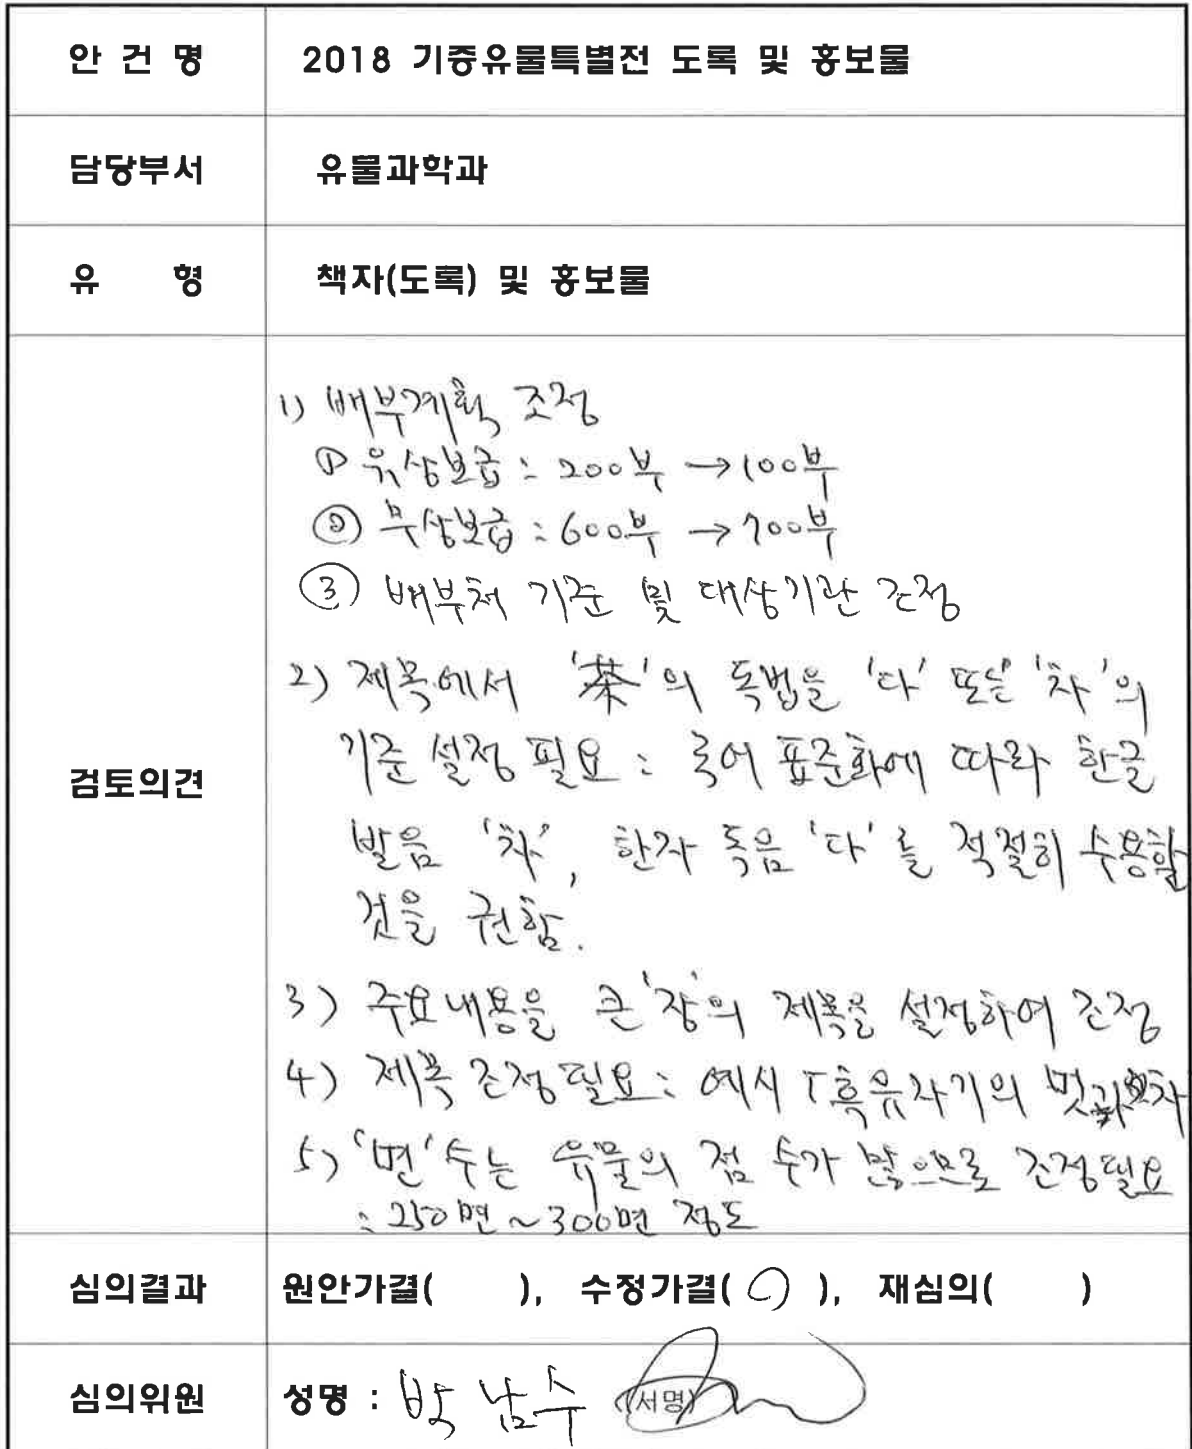 안 건 명 2018 기증유물특별전 도록 및 홍보물
담당부서 유물과학과
유 형 책자(도록) 및 홍보물
검토의견
1) 배부계획 조정
① 유상보급 : 200부 → 100부
② 무상보급 : 600부 → 700부
③ 배부처 기준 및 대상기관 조정
2) 제목에서 '茶'의 독법을 '다' 또는 '차'의
기준 설정 필요 : 국어 표준화에 따라 한글
발음 '차', 한자 독음 '다'를 적절히 수용할
것을 권함.
3) 주요내용을 큰 '장'의 제목을 설정하여 조정
4) 제목 조정필요 : 예시 「흑유자기의 멋과 차
5) '면'수는 유물의 점 수가 많으므로 조정필요
: 250면 ~ 300면 정도
심의결과 원안가결( ), 수정가결( ○ ), 재심의( )
심의위원 성명 : 박남수 (서명)